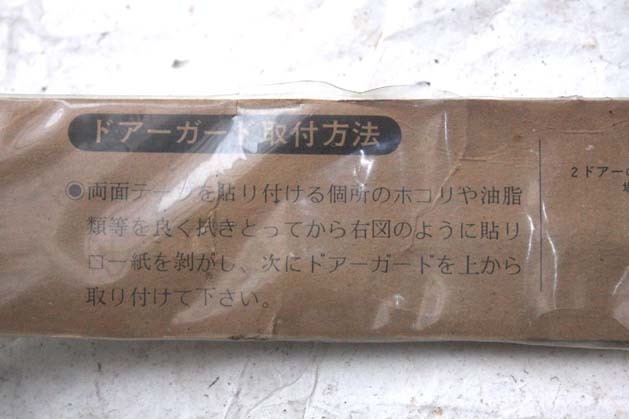 ドアーガード取付方法
◉両面テープを貼り付ける個所のホコリや油脂
類等を良く拭きとってから右図のように貼り
ロー紙を剝がし、次にドアーガードを上から
取り付けて下さい。
2ドアーの